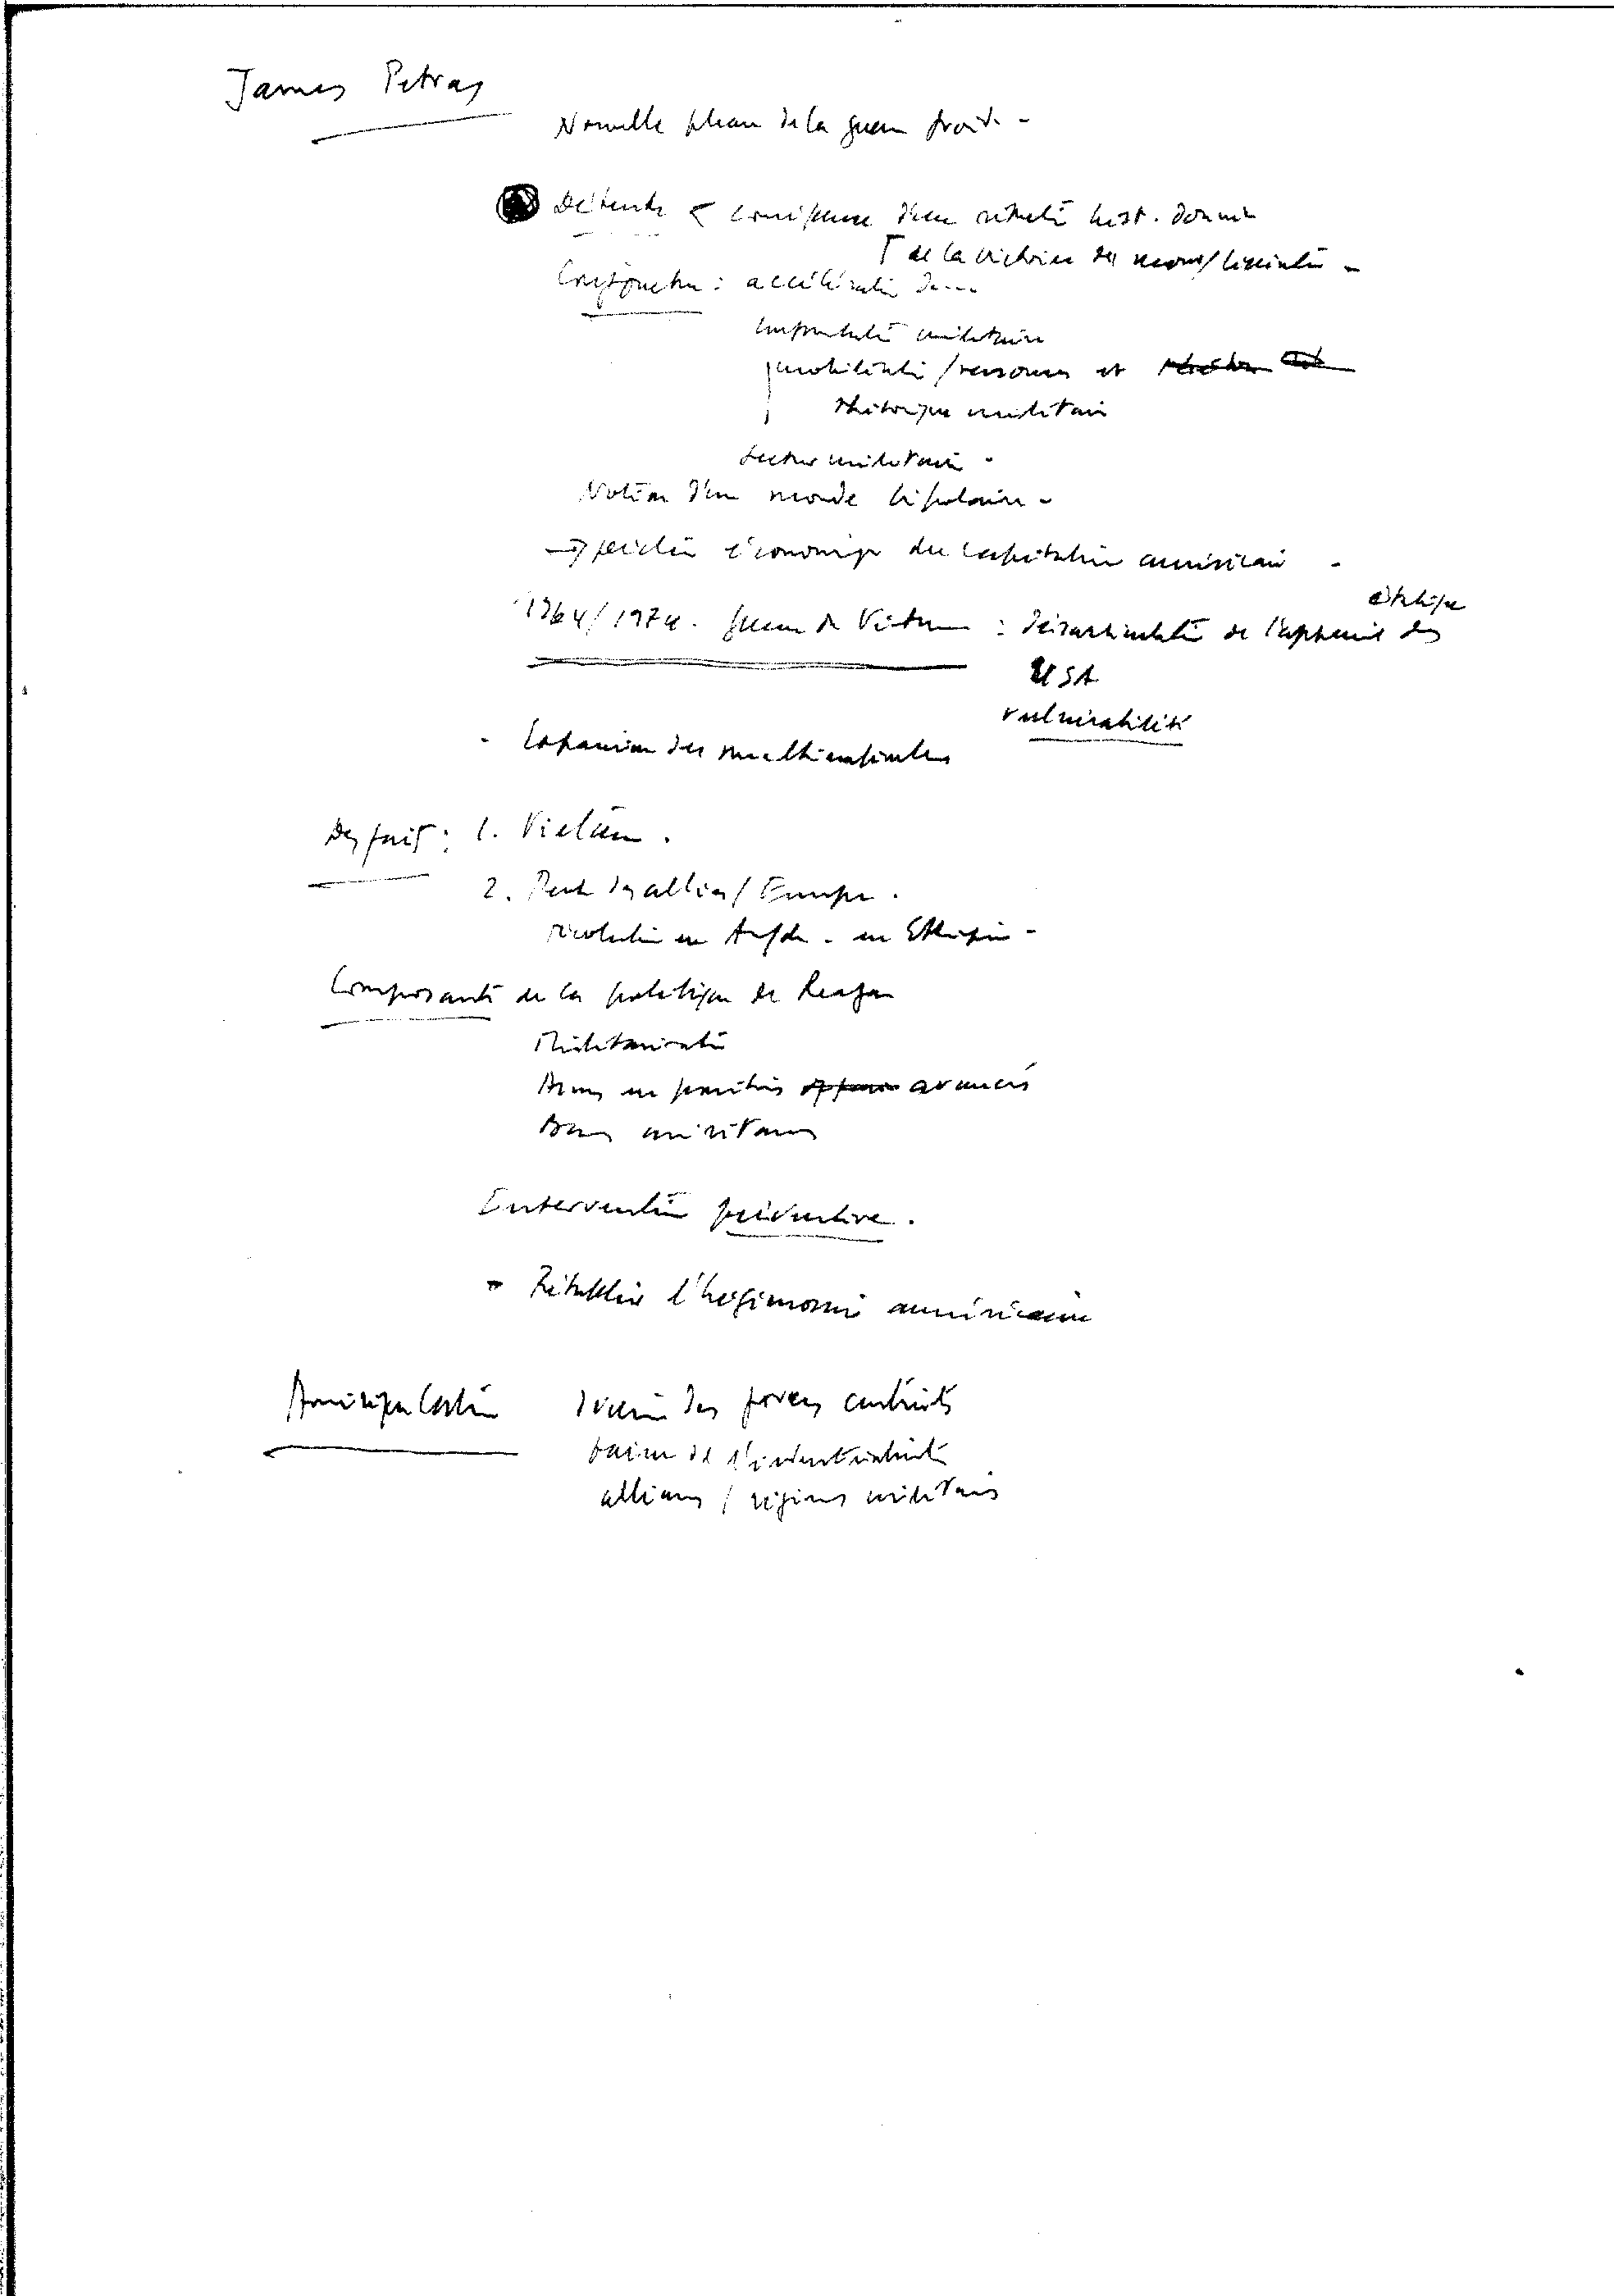 James Petras
Nouvelle phase de la guerre froide -
Détente < conséquence d'une situation hist. donnée
de la victoire des mouv/ libération -
Conjoncture : accélération de...
militaire
mobilisation / ressources et
rhétorique militaire
secteur militaire -
Notion d'un monde bipolaire -
→ déclin économique du capitalisme américain -
1964/1974. guerre du Vietnam : désarticulation de l'appareil des
USA
vulnérabilité
- Expansion des multinationales
Des faits : 1. Vietnam.
2. Perte des alliés / Europe.
révolution en Angola - en Ethiopie -
Composante de la politique de Reagan
Militarisation
Armes en positions avancées
Bases militaires
Intervention préventive.
- Rétablir l'hégémonie américaine
Amérique latine déclin des forces centristes
baisse de l'industrialisation
alliances / régimes militaires